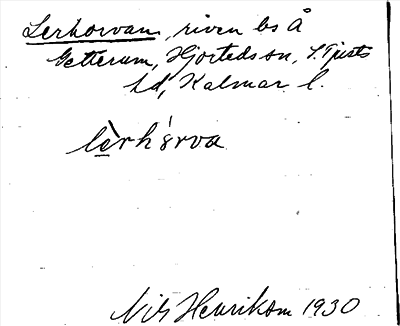 Lerhorvan, riven bs å
Getterum, Hjorteds sn, S. Tjusts
hd, Kalmar l.
lèrhórva
Nils Henrikson 1930